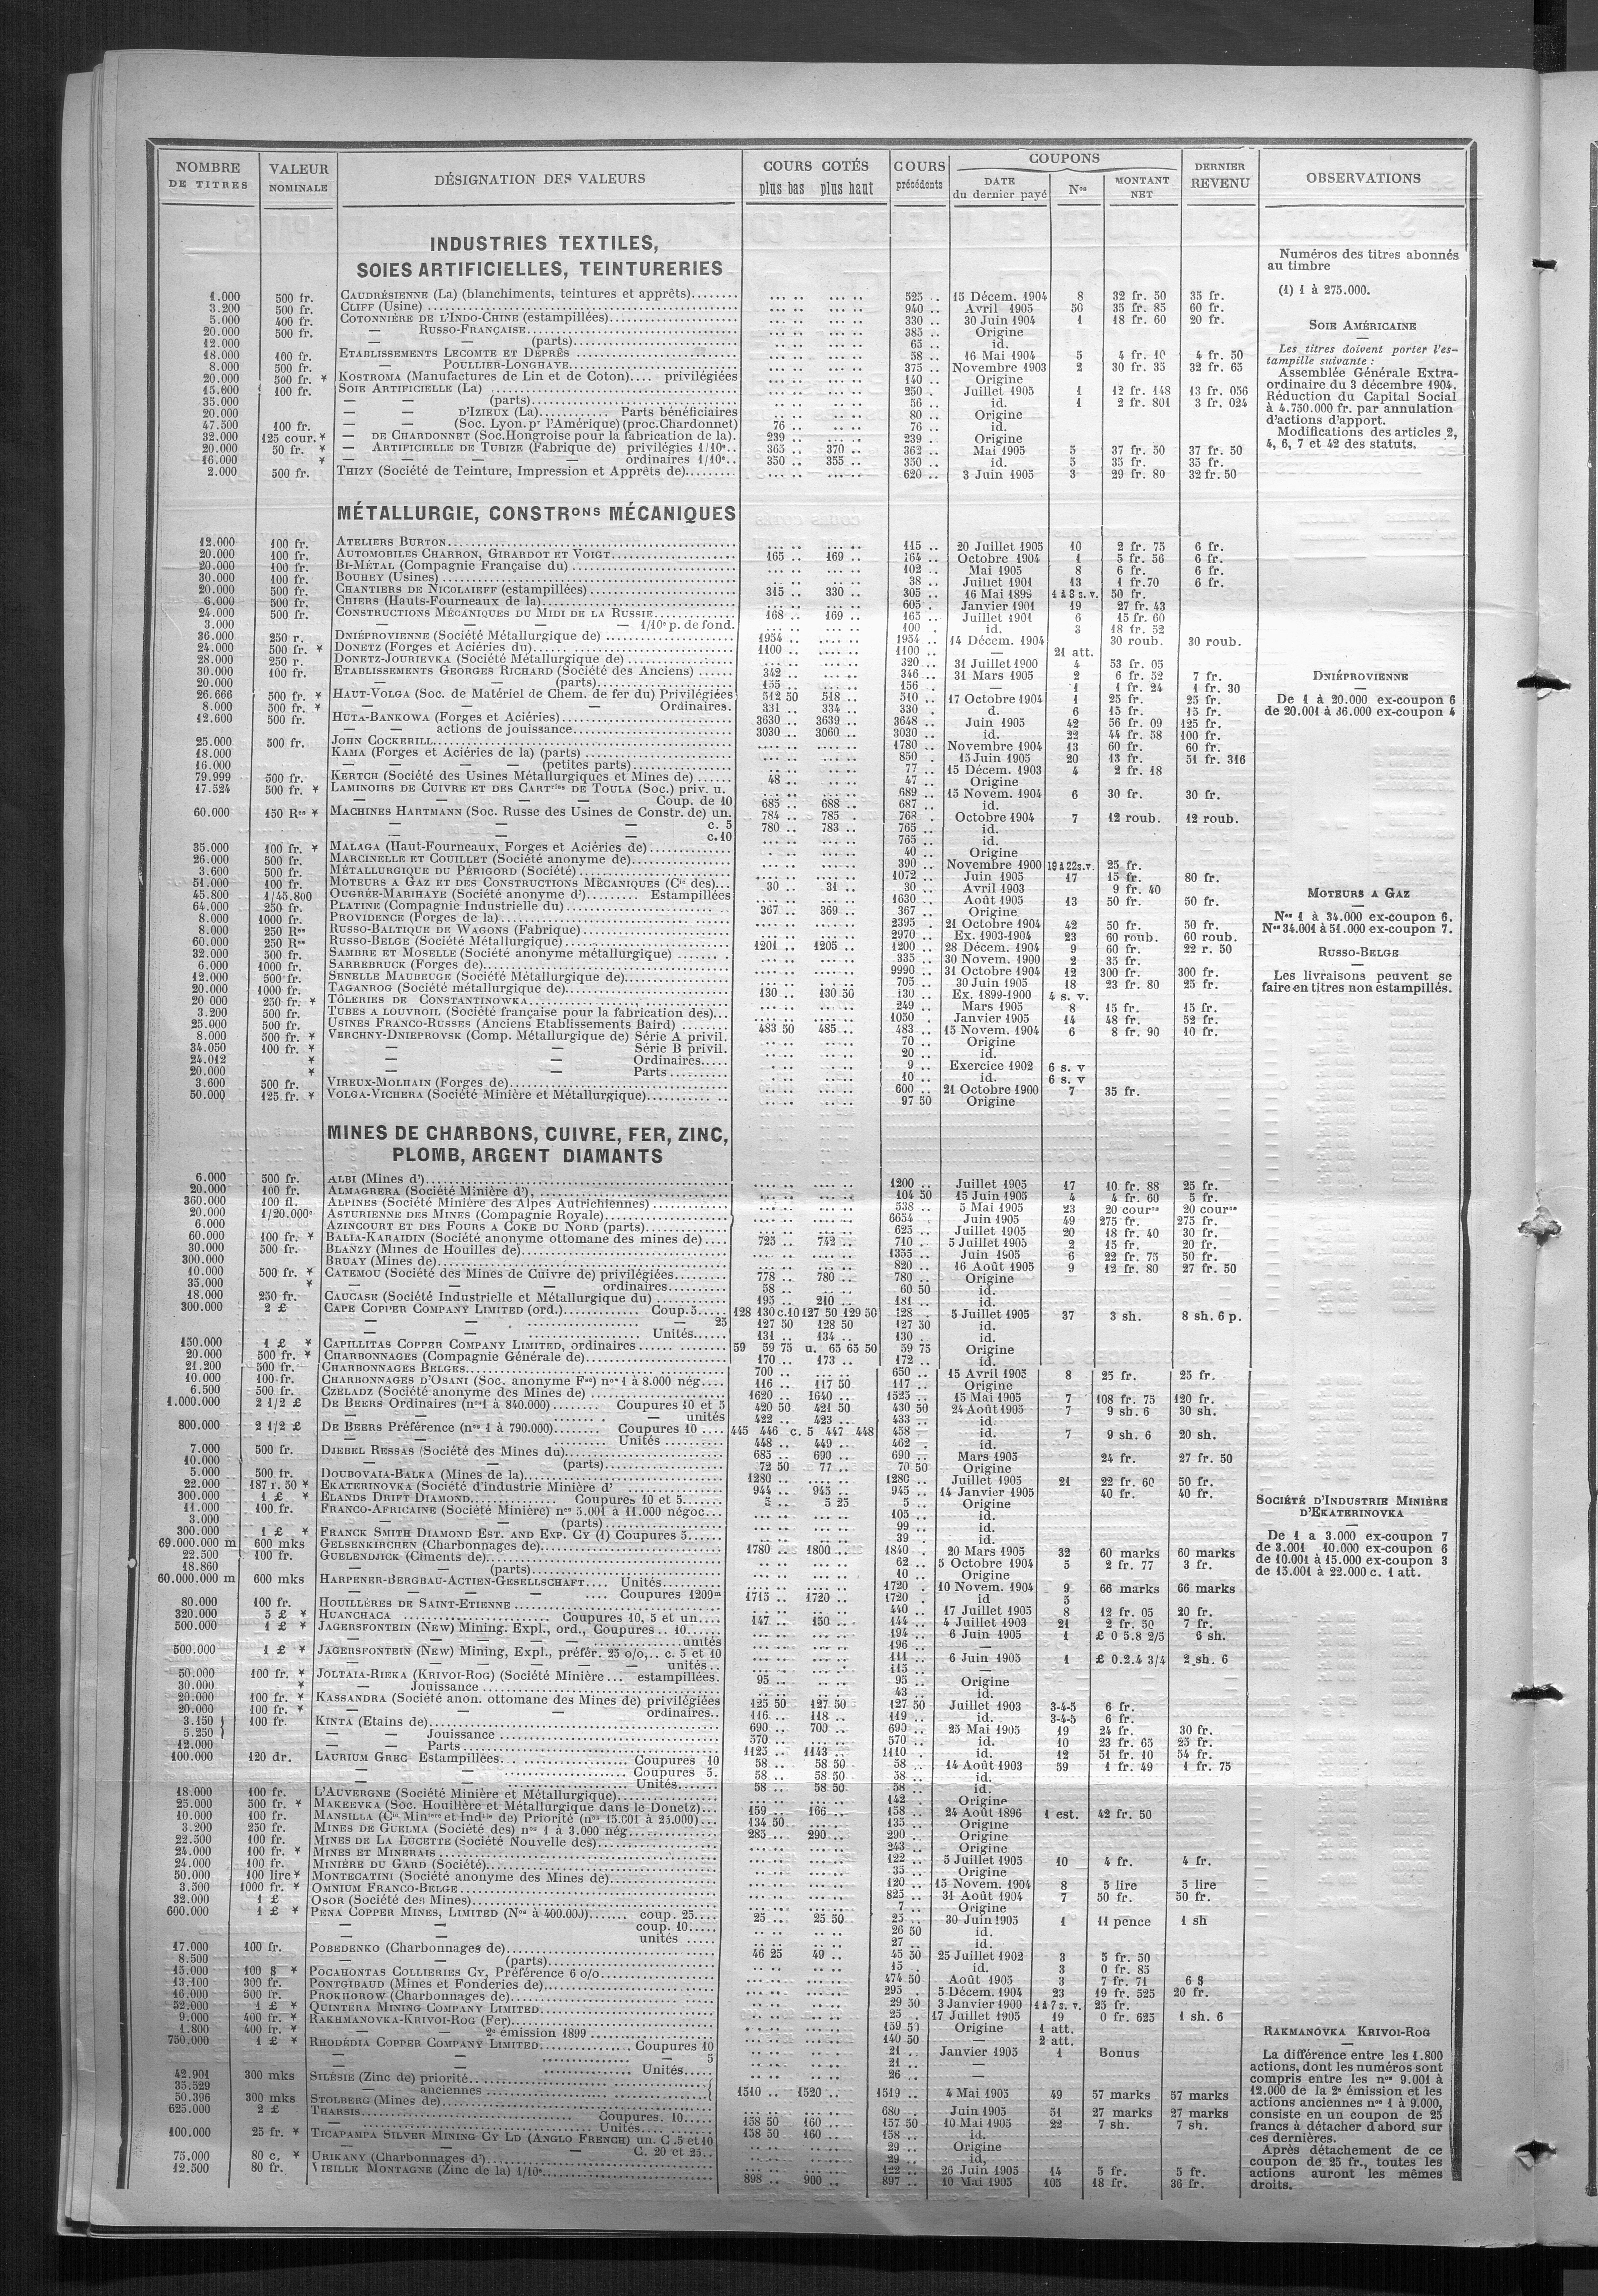 NOMBRE DE TITRES | VALEUR NOMINALE | DÉSIGNATION DES VALEURS | COURS COTÉS plus bas plus haut | COURS précédents | COUPONS DATE du dernier payé | Nos | MONTANT NET | DERNIER REVENU | OBSERVATIONS
INDUSTRIES TEXTILES,
SOIES ARTIFICIELLES, TEINTURERIES
1.000 500 fr. CAUDRÉSIENNE (La) (blanchiments, teintures et apprêts) 525 .. 15 Décem. 1904 8 32 fr. 50 35 fr.
3.200 500 fr. CLIFF (Usine) 940 .. Avril 1905 50 35 fr. 85 60 fr.
5.000 400 fr. COTONNIÈRE DE L'INDO-CHINE (estampillées) 330 .. 30 Juin 1904 1 18 fr. 60 20 fr.
20.000 500 fr. — RUSSO-FRANÇAISE 385 .. Origine
12.000 — — (parts) 65 .. id.
18.000 100 fr. ETABLISSEMENTS LECOMTE ET DEPRÈS 58 .. 16 Mai 1904 5 4 fr. 10 4 fr. 50
8.000 500 fr. — POULLIER-LONGHAYE 375 .. Novembre 1903 2 30 fr. 35 32 fr. 65
20.000 500 fr. * KOSTROMA (Manufactures de Lin et de Coton).... privilégiées 140 .. Origine
15.600 100 fr. SOIE ARTIFICIELLE (La) 250 .. Juillet 1905 1 12 fr. 148 13 fr. 056
35.000 — — (parts) 56 .. id. 1 2 fr. 801 3 fr. 024
20.000 — — D'IZIEUX (La) Parts bénéficiaires 80 .. Origine
47.500 100 fr. — — (Soc. Lyon. pr l'Amérique) (proc. Chardonnet) 76 .. 76 .. id.
32.000 125 cour. * — DE CHARDONNET (Soc. Hongroise pour la fabrication de la). 239 .. 239 .. Origine
20.000 50 fr. * — ARTIFICIELLE DE TUBIZE (Fabrique de) privilégiés 1/10e.. 365 .. 370 .. 362 .. Mai 1905 5 37 fr. 50 37 fr. 50
16.000 * — — — ordinaires 1/10e.. 350 .. 355 .. 350 .. id. 5 35 fr. 35 fr.
2.000 500 fr. THIZY (Société de Teinture, Impression et Apprêts de) 620 .. 3 Juin 1905 3 29 fr. 80 32 fr. 50
Numéros des titres abonnés
au timbre
(1) 1 à 275.000.
SOIE AMÉRICAINE
Les titres doivent porter l'es-
tampille suivante :
Assemblée Générale Extra-
ordinaire du 3 décembre 1904.
Réduction du Capital Social
à 4.750.000 fr. par annulation
d'actions d'apport.
Modifications des articles 2,
4, 6, 7 et 42 des statuts.
MÉTALLURGIE, CONSTRONS MÉCANIQUES
12.000 100 fr. ATELIERS BURTON 115 .. 20 Juillet 1905 10 2 fr. 75 6 fr.
20.000 100 fr. AUTOMOBILES CHARRON, GIRARDOT ET VOIGT 165 .. 169 .. 164 .. Octobre 1904 1 5 fr. 56 6 fr.
20.000 100 fr. BI-MÉTAL (Compagnie Française du) 102 .. Mai 1905 8 6 fr. 6 fr.
30.000 100 fr. BOUHEY (Usines) 38 .. Juillet 1901 13 1 fr.70 6 fr.
20.000 500 fr. CHANTIERS DE NICOLAIEFF (estampillées) 315 .. 330 .. 305 .. 16 Mai 1899 1 à 8 s.v. 50 fr.
6.000 500 fr. CHIERS (Hauts-Fourneaux de la) 605 . Janvier 1901 19 27 fr. 43
24.000 500 fr. CONSTRUCTIONS MÉCANIQUES DU MIDI DE LA RUSSIE 168 .. 169 .. 165 .. Juillet 1901 6 15 fr. 60
3.000 — — — — 1/10e p. de fond. 100 . id. 3 18 fr. 52
36.000 250 r. DNIÉPROVIENNE (Société Métallurgique de) 1954 .. 1954 .. 14 Décem. 1904 30 roub. 30 roub.
24.000 500 fr. * DONETZ (Forges et Aciéries du) 1100 .. 1100 .. — 21 att.
28.000 250 r. DONETZ-JOURIEVKA (Société Métallurgique de) 320 .. 31 Juillet 1900 4 53 fr. 05
30.000 100 fr. ETABLISSEMENTS GEORGES RICHARD (Société des Anciens) 342 .. 346 .. 31 Mars 1905 2 6 fr. 52 7 fr.
20.000 — — — (parts) 155 .. 156 . — 1 1 fr. 24 1 fr. 30
26.666 500 fr. * HAUT-VOLGA (Soc. de Matériel de Chem. de fer du) Privilégiées 512 50 518 .. 510 .. 17 Octobre 1904 1 25 fr. 25 fr.
8.000 500 fr. * — — — Ordinaires. 331 .. 334 .. 330 . d. 6 15 fr. 15 fr.
12.600 500 fr. HUTA-BANKOWA (Forges et Aciéries) 3630 .. 3639 .. 3648 .. Juin 1905 42 56 fr. 09 125 fr.
— — actions de jouissance 3030 .. 3060 .. 3030 .. id. 22 44 fr. 58 100 fr.
25.000 500 fr. JOHN COCKERILL 1780 .. Novembre 1904 13 60 fr. 60 fr.
18.000 KAMA (Forges et Aciéries de la) (parts) 850 . 15 Juin 1905 20 13 fr. 51 fr. 316
16.000 — — — — (petites parts) 77 .. 15 Décem. 1903 4 2 fr. 18
79.999 500 fr. KERTCH (Société des Usines Métallurgiques et Mines de) 48 .. 47 .. Origine
17.524 500 fr. * LAMINOIRS DE CUIVRE ET DES CARTries DE TOULA (Soc.) priv. u. 689 .. 15 Novem. 1904 6 30 fr. 30 fr.
— — — — Coup. de 10 685 .. 688 .. 687 .. id.
60.000 150 Res * MACHINES HARTMANN (Soc. Russe des Usines de Constr. de) un. 784 .. 785 . 768 . Octobre 1904 7 12 roub. 12 roub.
— — — c. 5 780 .. 783 .. 765 .. id.
— — — c. 10 765 .. id.
35.000 100 fr. * MALAGA (Haut-Fourneaux, Forges et Aciéries de) 40 .. Origine
26.000 500 fr. MARCINELLE ET COUILLET (Société anonyme de) 390 .. Novembre 1900 19 à 22 s.v. 25 fr.
3.600 500 fr. MÉTALLURGIQUE DU PÉRIGORD (Société) 1072 .. Juin 1905 17 15 fr. 80 fr.
51.000 100 fr. MOTEURS A GAZ ET DES CONSTRUCTIONS MÉCANIQUES (Cie des) 30 .. 31 .. 30 .. Avril 1903 9 fr. 40
45.800 1/45.800 OUGRÉE-MARIHAYE (Société anonyme d') Estampillées 1630 .. Août 1905 13 50 fr. 50 fr.
64.000 250 fr. PLATINE (Compagnie Industrielle du) 367 .. 369 .. 367 .. Origine
8.000 1000 fr. PROVIDENCE (Forges de la) 2395 .. 21 Octobre 1904 42 50 fr. 50 fr.
8.000 250 Res RUSSO-BALTIQUE DE WAGONS (Fabrique) 2970 .. Ex. 1903-1904 23 60 roub. 60 roub.
60.000 250 Res RUSSO-BELGE (Société Métallurgique) 1201 .. 1205 .. 1200 .. 28 Décem. 1904 9 60 fr. 22 r. 50
32.000 500 fr. SAMBRE ET MOSELLE (Société anonyme métallurgique) 335 .. 30 Novem. 1900 2 35 fr.
6.000 1000 fr. SARREBRUCK (Forges de) 9990 .. 31 Octobre 1904 12 300 fr. 300 fr.
12.000 500 fr. SENELLE MAUBEUGE (Société Métallurgique de) 705 .. 30 Juin 1905 18 23 fr. 80 25 fr.
20.000 1000 fr. TAGANROG (Société métallurgique de) 130 .. 130 50 130 .. Ex. 1899-1900 4 s. v.
20 000 250 fr. * TÔLERIES DE CONSTANTINOWKA 249 .. Mars 1905 8 15 fr. 15 fr.
3.200 500 fr. TUBES A LOUVROIL (Société française pour la fabrication des) 1050 . Janvier 1905 14 48 fr. 52 fr.
25.000 500 fr. USINES FRANCO-RUSSES (Anciens Etablissements Baird) 483 50 485 .. 483 .. 15 Novem. 1904 6 8 fr. 90 10 fr.
8.000 500 fr. * VERCHNY-DNIEPROVSK (Comp. Métallurgique de) Série A privil. 70 .. Origine
34.050 100 fr. * — — Série B privil. 20 .. id.
24.012 * — — Ordinaires 9 .. Exercice 1902 6 s. v
20.000 * — — Parts 10 .. id. 6 s. v
3.600 500 fr. VIREUX-MOLHAIN (Forges de) 600 .. 21 Octobre 1900 7 35 fr.
50.000 125 fr. * VOLGA-VICHERA (Société Minière et Métallurgique) 97 50 Origine
DNIÉPROVIENNE
De 1 à 20.000 ex-coupon 6
de 20.001 à 36.000 ex-coupon 4
MOTEURS A GAZ
Nos 1 à 34.000 ex-coupon 6.
Nos 34.001 à 51.000 ex-coupon 7.
RUSSO-BELGE
Les livraisons peuvent se
faire en titres non estampillés.
MINES DE CHARBONS, CUIVRE, FER, ZINC,
PLOMB, ARGENT DIAMANTS
6.000 500 fr. ALBI (Mines d') 1200 .. Juillet 1905 17 10 fr. 88 25 fr.
20.000 100 fr. ALMAGRERA (Société Minière d') 104 50 15 Juin 1905 4 4 fr. 60 5 fr.
360.000 100 fl. ALPINES (Société Minière des Alpes Autrichiennes) 538 .. 5 Mai 1905 23 20 cour. 20 cour.
20.000 1/20.000e ASTURIENNE DES MINES (Compagnie Royale) 6654 . Juin 1905 49 275 fr. 275 fr.
6.000 AZINCOURT ET DES FOURS A COKE DU NORD (parts) 625 .. Juillet 1905 20 18 fr. 40 30 fr.
60.000 100 fr. * BALIA-KARAIDIN (Société anonyme ottomane des mines de) 725 .. 742 .. 710 . 5 Juillet 1905 2 15 fr. 20 fr.
30.000 500 fr. BLANZY (Mines de Houilles de) 1355 .. Juin 1905 6 22 fr. 75 50 fr.
300.000 BRUAY (Mines de) 820 .. 16 Août 1905 9 12 fr. 80 27 fr. 50
10.000 500 fr. * CATEMOU (Société des Mines de Cuivre de) privilégiées 778 .. 780 .. 780 .. Origine
35.000 * — — ordinaires 58 .. 60 50 id.
18.000 250 fr. CAUCASE (Société Industrielle et Métallurgique du) 195 .. 210 .. 181 .. id.
300.000 2 £ CAPE COPPER COMPANY LIMITED (ord.) Coup. 5 128 130 c.10 127 50 129 50 128 . 5 Juillet 1905 37 3 sh. 8 sh. 6 p.
— — — 25 127 50 128 50 127 50 id.
— — Unités 131 .. 134 .. 130 . id.
150.000 1 £ * CAPILLITAS COPPER COMPANY LIMITED, ordinaires 59 59 75 u. 65 65 50 59 75 Origine
20.000 500 fr. * CHARBONNAGES (Compagnie Générale de) 170 .. 173 .. 172 .. id.
21.200 500 fr. CHARBONNAGES BELGES 700 .. 650 .. 15 Avril 1905 8 25 fr. 25 fr.
10.000 100 fr. CHARBONNAGES D'OSANI (Soc. anonyme Fse) nos 1 à 8.000 nég. 116 .. 117 50 117 .. Origine
6.500 500 fr. CZELADZ (Société anonyme des Mines de) 1620 .. 1640 .. 1525 .. 15 Mai 1905 7 108 fr. 75 120 fr.
1.000.000 2 1/2 £ DE BEERS Ordinaires (nos 1 à 840.000) Coupures 10 et 5 420 50 421 50 430 50 24 Août 1905 7 9 sh. 6 30 sh.
— — — unités 422 .. 423 .. 433 .. id.
800.000 2 1/2 £ DE BEERS Préférence (nos 1 à 790.000) Coupures 10 445 446 c. 5 447 448 458 .. id. 7 9 sh. 6 20 sh.
— — Unités 448 .. 449 .. 462 . id.
7.000 500 fr. DJEBEL RESSAS (Société des Mines du) 685 .. 690 .. 690 .. Mars 1905 24 fr. 27 fr. 50
10.000 — — (parts) 72 50 77 .. 70 50 Origine
5.000 500 fr. DOUBOVAIA-BALKA (Mines de la) 1280 .. 1280 .. Juillet 1905 21 22 fr. 60 50 fr.
22.000 187 r. 50 * EKATERINOVKA (Société d'industrie Minière d' 944 .. 945 .. 945 .. 14 Janvier 1905 40 fr. 40 fr.
300.000 1 £ * ELANDS DRIFT DIAMOND Coupures 10 et 5 5 .. 5 25 5 .. Origine
11.000 100 fr. FRANCO-AFRICAINE (Société Minière) nos 5.001 à 11.000 négoc. 105 .. id.
3.000 — — (parts) 99 .. id.
300.000 1 £ * FRANCK SMITH DIAMOND EST. AND EXP. CY (1) Coupures 5 39 . id.
69.000.000 m 600 mks GELSENKIRCHEN (Charbonnages de) 1780 .. 1800 .. 1840 . 20 Mars 1905 32 60 marks 60 marks
22.500 100 fr. GUELENDJICK (Ciments de) 62 .. 5 Octobre 1904 5 2 fr. 77 3 fr.
18.860 — — (parts) 10 .. Origine
60.000.000 m 600 mks HARPENER-BERGBAU-ACTIEN-GESELLSCHAFT Unités 1720 . 10 Novem. 1904 9 66 marks 66 marks
— — — Coupures 1200m 1715 .. 1720 .. 1720 . id 5
80.000 100 fr. HOUILLÈRES DE SAINT-ETIENNE 440 .. 17 Juillet 1905 8 12 fr. 05 20 fr.
320.000 5 £ * HUANCHACA Coupures 10, 5 et un. 147 .. 150 .. 144 .. 4 Juillet 1903 21 2 fr. 50 7 fr.
500.000 1 £ * JAGERSFONTEIN (NEW) Mining. Expl., ord., Coupures .. 10 194 .. 6 Juin 1905 1 £ 0 5.8 2/5 6 sh.
— — — unités 196 .. —
500.000 1 £ * JAGERSFONTEIN (NEW) Mining, Expl., préfér. 25 o/o,.. c. 5 et 10 111 .. 6 Juin 1905 1 £ 0.2.4 3/4 2 sh. 6
— — — — unités 115 .. —
50.000 100 fr. * JOLTAIA-RIEKA (KRIVOI-ROG) (Société Minière estampillées. 95 .. 95 .. Origine
30.000 * — — Jouissance 43 .. id.
20.000 100 fr. * KASSANDRA (Société anon. ottomane des Mines de) privilégiées 125 50 127 50 127 50 Juillet 1903 3-4-5 6 fr.
20.000 100 fr. * — — — ordinaires.. 116 .. 118 .. 119 .. id. 3-4-5 6 fr.
3.150 } 100 fr. KINTA (Etains de) 690 .. 700 .. 690 .. 25 Mai 1905 19 24 fr. 30 fr.
5.250 } — — Jouissance 570 .. 570 .. id. 10 23 fr. 65 25 fr.
12.000 — — Parts 1125 .. 1143 .. 1110 . id. 12 51 fr. 10 54 fr.
100.000 120 dr. LAURIUM GREC Estampillées Coupures 10 58 .. 58 50 58 .. 14 Août 1903 59 1 fr. 49 1 fr. 75
— — Coupures 5. 58 .. 58 50 58 .. id.
— — Unités 58 .. 58 50 58 .. id.
18.000 100 fr. L'AUVERGNE (Société Minière et Métallurgique) 142 . Origine
25.000 500 fr. * MAKEEVKA (Soc. Houillère et Métallurgique dans le Donetz) 159 .. 166 .. 158 .. 24 Août 1896 1 est. 42 fr. 50
10.000 100 fr. MANSILLA (Cie Minière et Indlle de) Priorité (nos 15.001 à 25.000) 134 50 135 .. Origine
3.200 250 fr. MINES DE GUELMA (Société des) nos 1 à 3.000 nég. 285 .. 290 .. 290 .. Origine
22.500 100 fr. MINES DE LA LUCETTE (Société Nouvelle des) 243 .. Origine
24.000 100 fr. * MINES ET MINERAIS 122 .. 5 Juillet 1905 10 4 fr. 4 fr.
24.000 100 fr. MINIÈRE DU GARD (Société) 35 .. Origine
50.000 100 lire * MONTECATINI (Société anonyme des Mines de) 120 .. 15 Novem. 1904 8 5 lire 5 lire
3.500 1000 fr. * OMNIUM FRANCO-BELGE 825 .. 31 Août 1904 7 50 fr. 50 fr.
32.000 1 £ OSOR (Société des Mines) 7 .. Origine
600.000 1 £ * PENA COPPER MINES, LIMITED (Nos à 400.000) coup. 25 25 .. 25 50 25 .. 30 Juin 1905 1 11 pence 1 sh
— — coup. 10 26 50 id.
— — unités 27 .. id.
17.000 100 fr. POBEDENKO (Charbonnages de) 46 25 49 .. 45 50 25 Juillet 1902 3 5 fr. 50
8.500 — — (parts) 15 . id. 3 0 fr. 85
15.000 100 $ * POCAHONTAS COLLIERIES CY, Préférence 6 o/o 474 50 Août 1905 3 7 fr. 71 6 $
13.100 300 fr. PONTGIBAUD (Mines et Fonderies de) 295 . 5 Décem. 1904 23 19 fr. 525 20 fr.
16.000 500 fr. PROKHOROW (Charbonnages de) 29 50 3 Janvier 1900 1 à 7 s. v. 25 fr.
52.000 1 £ * QUINTERA MINING COMPANY LIMITED 25 . 17 Juillet 1905 19 0 fr. 625 1 sh. 6
9.000 400 fr. * RAKHMANOVKA-KRIVOI-ROG (Fer) 159 50 Origine 1 att.
1.800 400 fr. * — — 2e émission 1899 140 50 — 2 att.
750.000 1 £ * RHODÉDIA COPPER COMPANY LIMITED Coupures 10 21 .. Janvier 1905 1 Bonus
— — 5 21 .. —
— — Unités 26 .. —
42.901 300 mks SILÉSIE (Zinc de) priorité
35.529 — — anciennes 1510 .. 1520 .. 1519 .. 4 Mai 1905 49 57 marks 57 marks
50.396 300 mks STOLBERG (Mines de) 680 . Juin 1905 51 27 marks 27 marks
625.000 2 £ THARSIS Coupures. 10 158 50 160 .. 157 50 10 Mai 1905 22 7 sh. 7 sh.
— Unités 158 50 160 .. 158 .. id.
100.000 25 fr. * TICAPAMPA SILVER MINING CY LD (ANGLO FRENCH) un. C .5 et 10 29 .. Origine
— — C. 20 et 25 29 .. id.
75.000 80 c. * URIKANY (Charbonnages d') 122 .. 26 Juin 1905 14 5 fr. 5 fr.
12.500 80 fr. VIEILLE MONTAGNE (Zinc de la) 1/10e 898 .. 900 .. 897 .. 10 Mai 1905 105 18 fr. 36 fr.
SOCIÉTÉ D'INDUSTRIE MINIÈRE
D'EKATERINOVKA
De 1 a 3.000 ex-coupon 7
de 3.001 10.000 ex-coupon 6
de 10.001 à 15.000 ex-coupon 3
de 15.001 à 22.000 c. 1 att.
RAKMANOVKA KRIVOI-ROG
La différence entre les 1.800
actions, dont les numéros sont
compris entre les nos 9.001 à
12.000 de la 2e émission et les
actions anciennes nos 1 à 9.000,
consiste en un coupon de 25
francs à détacher d'abord sur
ces dernières.
Après détachement de ce
coupon de 25 fr., toutes les
actions auront les mêmes
droits.